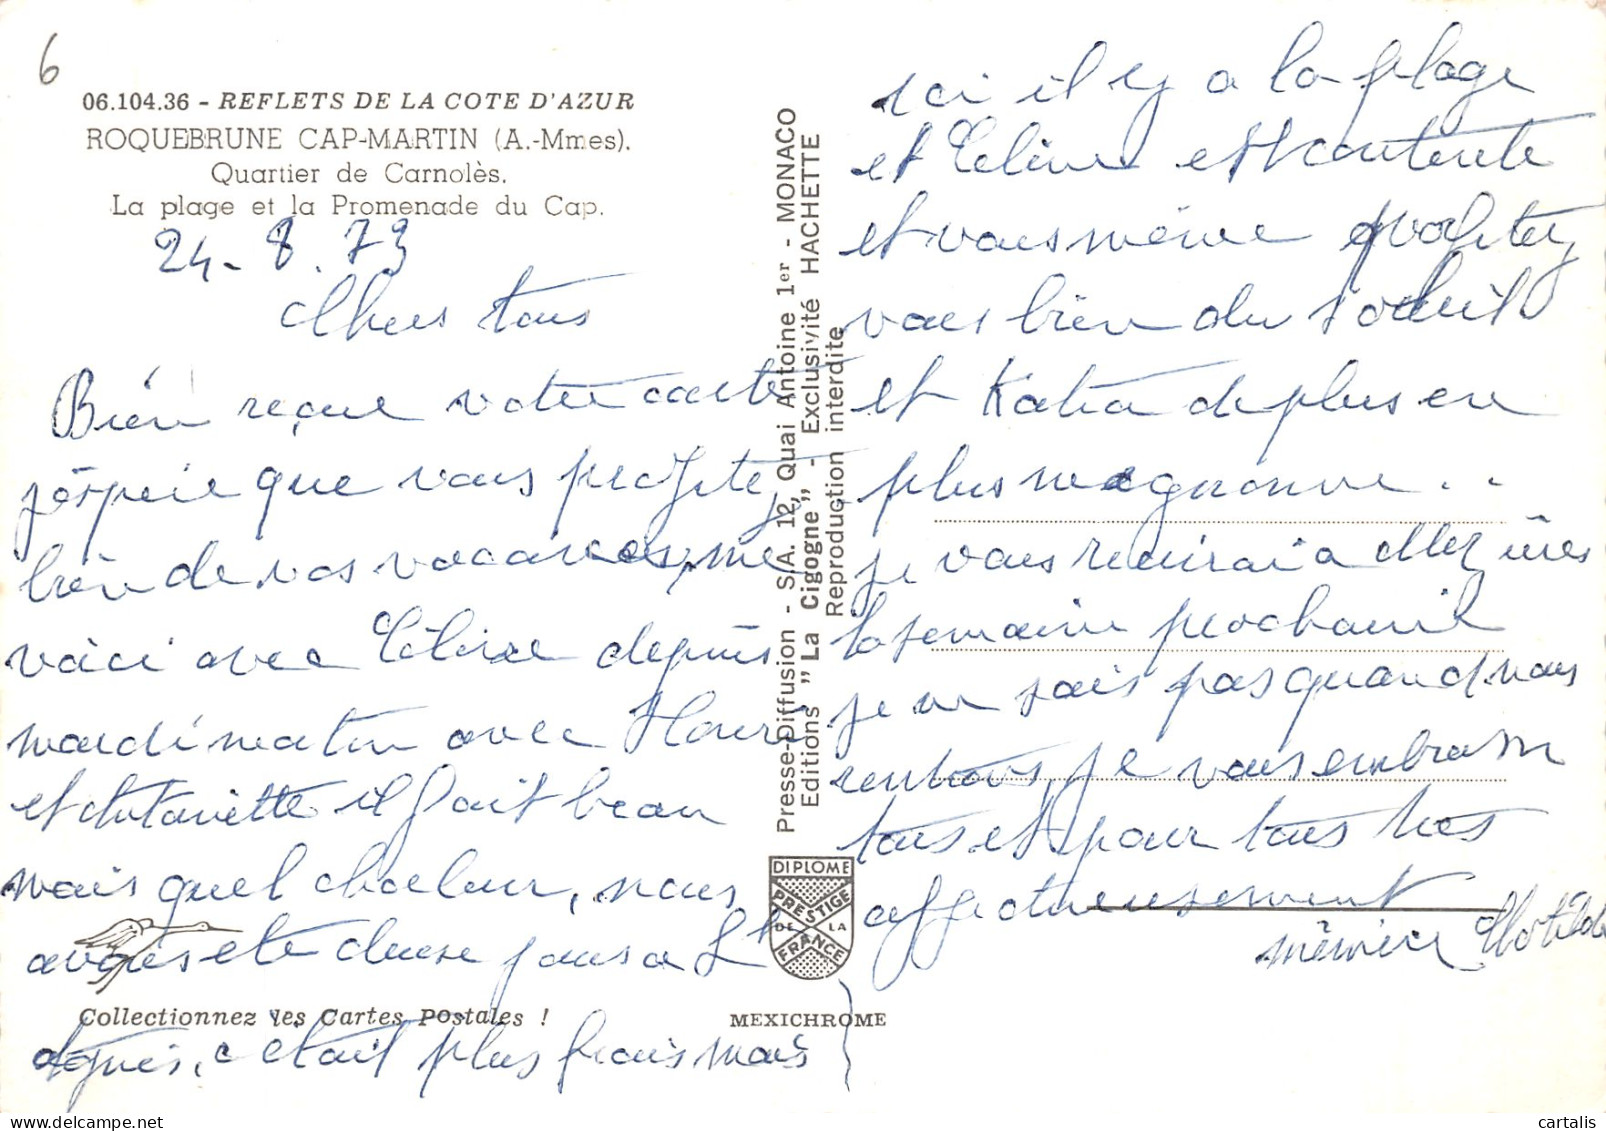 6
06.104.36 - REFLETS DE LA COTE D'AZUR
ROQUEBRUNE CAP-MARTIN (A.-Mmes).
Quartier de Carnolès.
La plage et la Promenade du Cap.
24-8.73
Chers tous
Bien reçue votre carte
j'éspère que vous profitez
bien de vos vacances, me
voici avec Céline depuis
mardi matin avec
et Antoinette il fait beau
mais quel chaleur, nous
avons ete deuse jours a St
Agnés, c etait plus frais mais
Collectionnez les Cartes Postales !
MEXICHROME
Presse-Diffusion - S.A. 12, Quai Antoine 1er - MONACO
Editions "La Cigogne" - Exclusivité HACHETTE
Reproduction interdite
DIPLOME
PRESTIGE
DE LA
FRANCE
ici il y a la plage
et Céline est contente
et vous même profitez
vous bien du soleuil
et Katia de plus en
plus megnonne ..
je vous recirai a chez
la semaine prochaine
je ne sais pas quand nous
rentrons, je vous embrasse
tous et pour tous tres
affectueusement
mémére Clotilde
cartalis